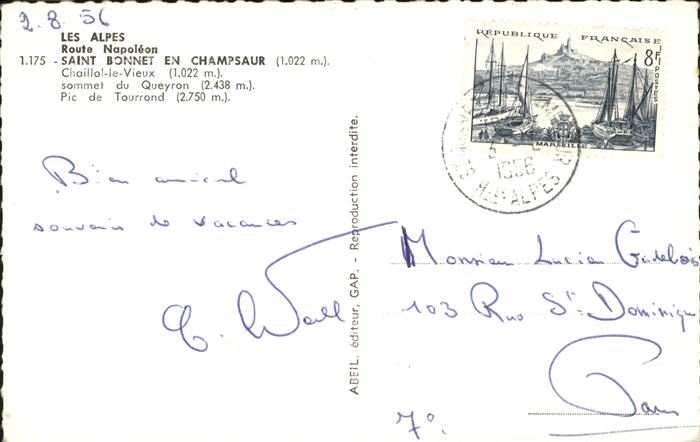 2.8.56
LES ALPES
Route Napoléon
1.175 - SAINT BONNET EN CHAMPSAUR (1.022 m.).
Chaillol-le-Vieux (1.022 m.).
sommet du Queyron (2.438 m.).
Pic de Tourrond (2.750 m.).
RÉPUBLIQUE FRANÇAISE
8F
POSTES
MARSEILLE
1956
HTES ALPES
Bien amical
souvenir de vacances
ABEIL, éditeur, GAP. - Reproduction interdite.
Monsieur Lucien
103 Rue St. Dominique
Paris
7°.